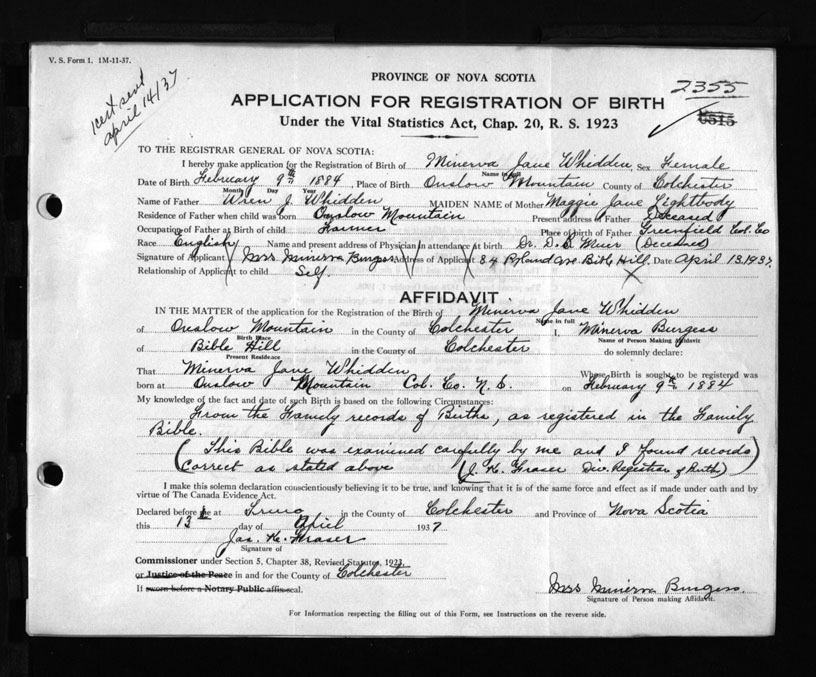 V. S. Form 1. 1M-11-37.
cert sent
april 14/37
PROVINCE OF NOVA SCOTIA
2355
APPLICATION FOR REGISTRATION OF BIRTH
6515
Under the Vital Statistics Act, Chap. 20, R. S. 1923
TO THE REGISTRAR GENERAL OF NOVA SCOTIA:
I hereby make application for the Registration of Birth of Minerva Jane Whidden, Sex Female
Name in full
Date of Birth February 9th 1884, Place of Birth Onslow Mountain County of Colchester
Month Day Year
Name of Father Wren J. Whidden MAIDEN NAME of Mother Maggie Jane Lightbody
Residence of Father when child was born Onslow Mountain Present address of Father Deceased
Occupation of Father at Birth of child Farmer Place of birth of Father Greenfield Col. Co
Race English Name and present address of Physician in attendance at birth Dr. D. B. Muir (Deceased)
Signature of Applicant Mrs Minerva Burgess Address of Applicant 84 Pyland Ave Bible Hill. Date April 13. 1937.
Relationship of Applicant to child Self.
AFFIDAVIT
IN THE MATTER of the application for the Registration of the Birth of Minerva Jane Whidden
Name in full
of Onslow Mountain in the County of Colchester I, Minerva Burgess
Birth Place Name of Person Making Affidavit
of Bible Hill in the County of Colchester do solemnly declare:
Present Residence
That Minerva Jane Whidden Whose Birth is sought to be registered was
born at Onslow Mountain Col. Co. N. S. on February 9th 1884
My knowledge of the fact and date of such Birth is based on the following Circumstances:
From the Family records of Births, as registered in the Family
Bible.
(This Bible was examined carefully by me and I found records)
(Correct as stated above (J. K. Fraser Div. Registrar of Births)
I make this solemn declaration conscientiously believing it to be true, and knowing that it is of the same force and effect as if made under oath and by
virtue of The Canada Evidence Act.
Declared before me at Truro in the County of Colchester and Province of Nova Scotia
this 13th day of April 1937
Jas. K. Fraser
Signature of
Commissioner under Section 5, Chapter 38, Revised Statutes, 1923,
or Justice of the Peace in and for the County of Colchester
If sworn before a Notary Public affix seal.
Mrs Minerva Burgess
Signature of Person making Affidavit.
For Information respecting the filling out of this Form, see Instructions on the reverse side.